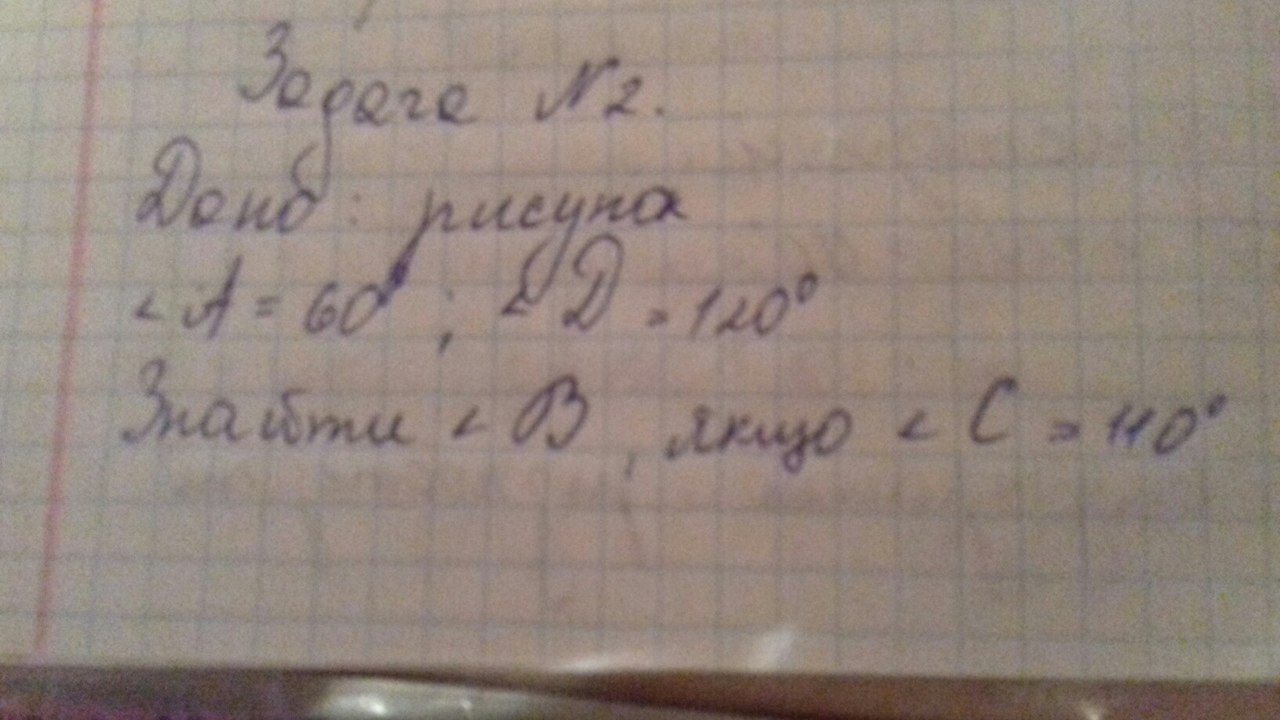 Задача №2.
Дано: рисунок
∠A = 60°; ∠D = 120°
Знайти ∠B, якщо ∠C = 110°